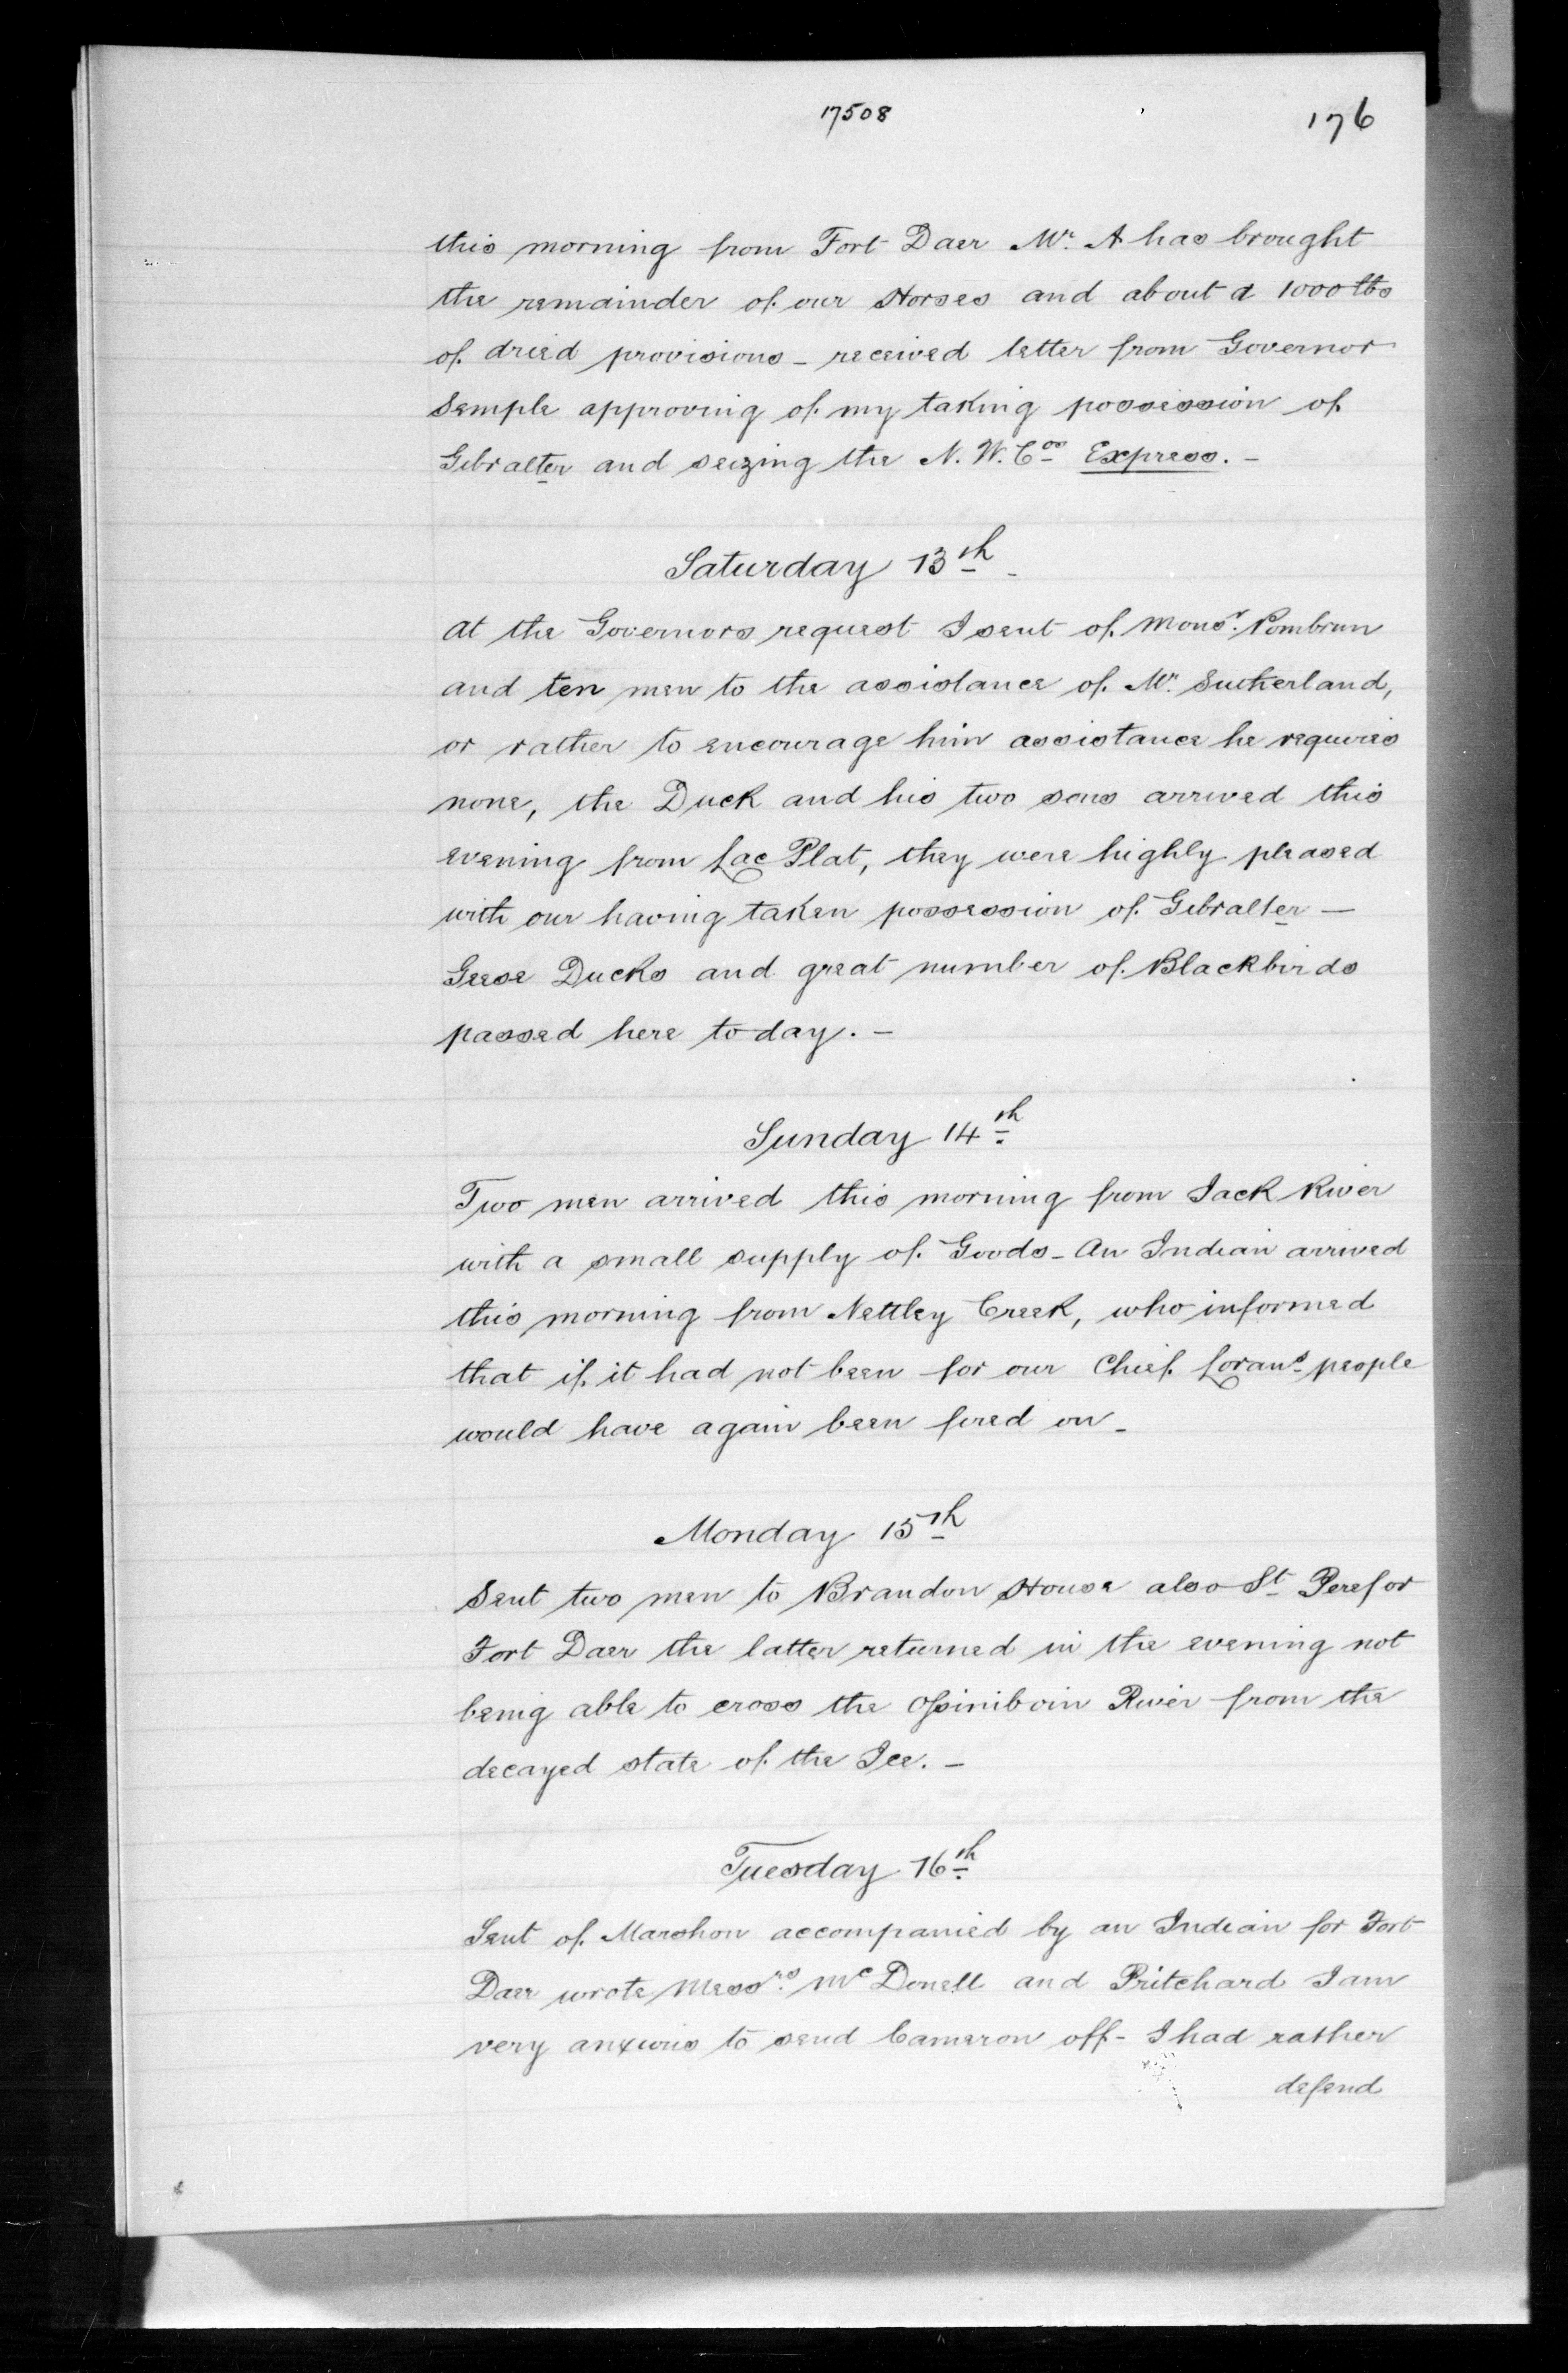 17508
176
this morning from Fort Daer Mr. A has brought
the remainder of our Horses and about a 1000 lbs
of dried provisions - received letter from Governor
Semple approving of my taking possession of
Gibralter and seizing the N. W. Cos Express. -
Saturday 13th -
At the Governors request I sent of Monsr. Pombrun
and ten men to the assistance of Mr. Sutherland,
or rather to encourage him assistance he requires
none, the Duck and his two sons arrived this
evening from Lac Plat, they were highly pleased
with our having taken possession of Gibralter —
Geese Ducks and great number of Blackbirds
passed here to day. -
Sunday 14th
Two men arrived this morning from Jack River
with a small supply of Goods - An Indian arrived
this morning from Nettley Creek, who informed
that if it had not been for our Chief Lorans people
would have again been fired on -
Monday 15th
Sent two men to Brandon House also St Pere for
Fort Daer the latter returned in the evening not
being able to cross the Ossiniboin River from the
decayed state of the Ice. -
Tuesday 16th
Sent of Marshon accompanied by an Indian for Fort
Daer wrote Messrs. McDonell and Pritchard I am
very anxious to send Cameron off - I had rather
defend